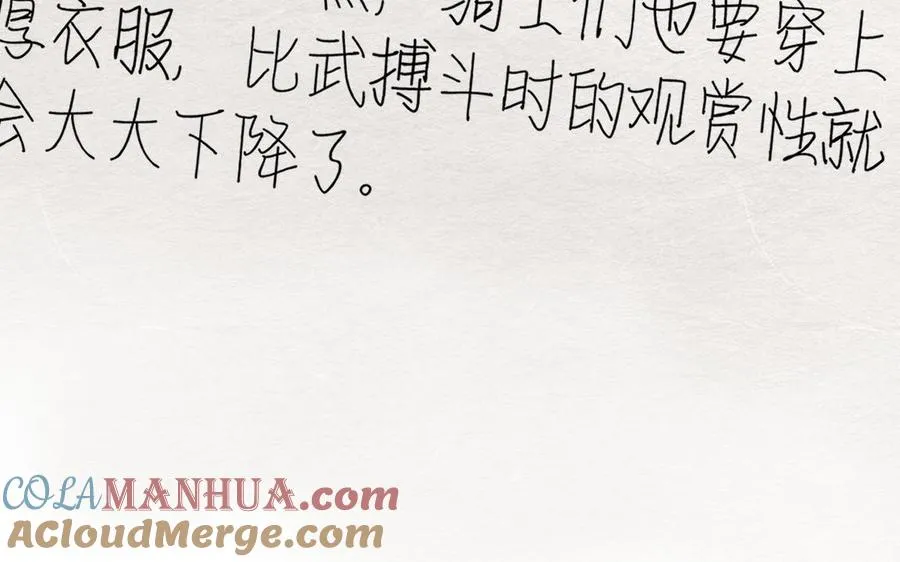 骑士们也要穿上
厚衣服，比武搏斗时的观赏性就
会大大下降了。
COLAMANHUA.com
ACloudMerge.com